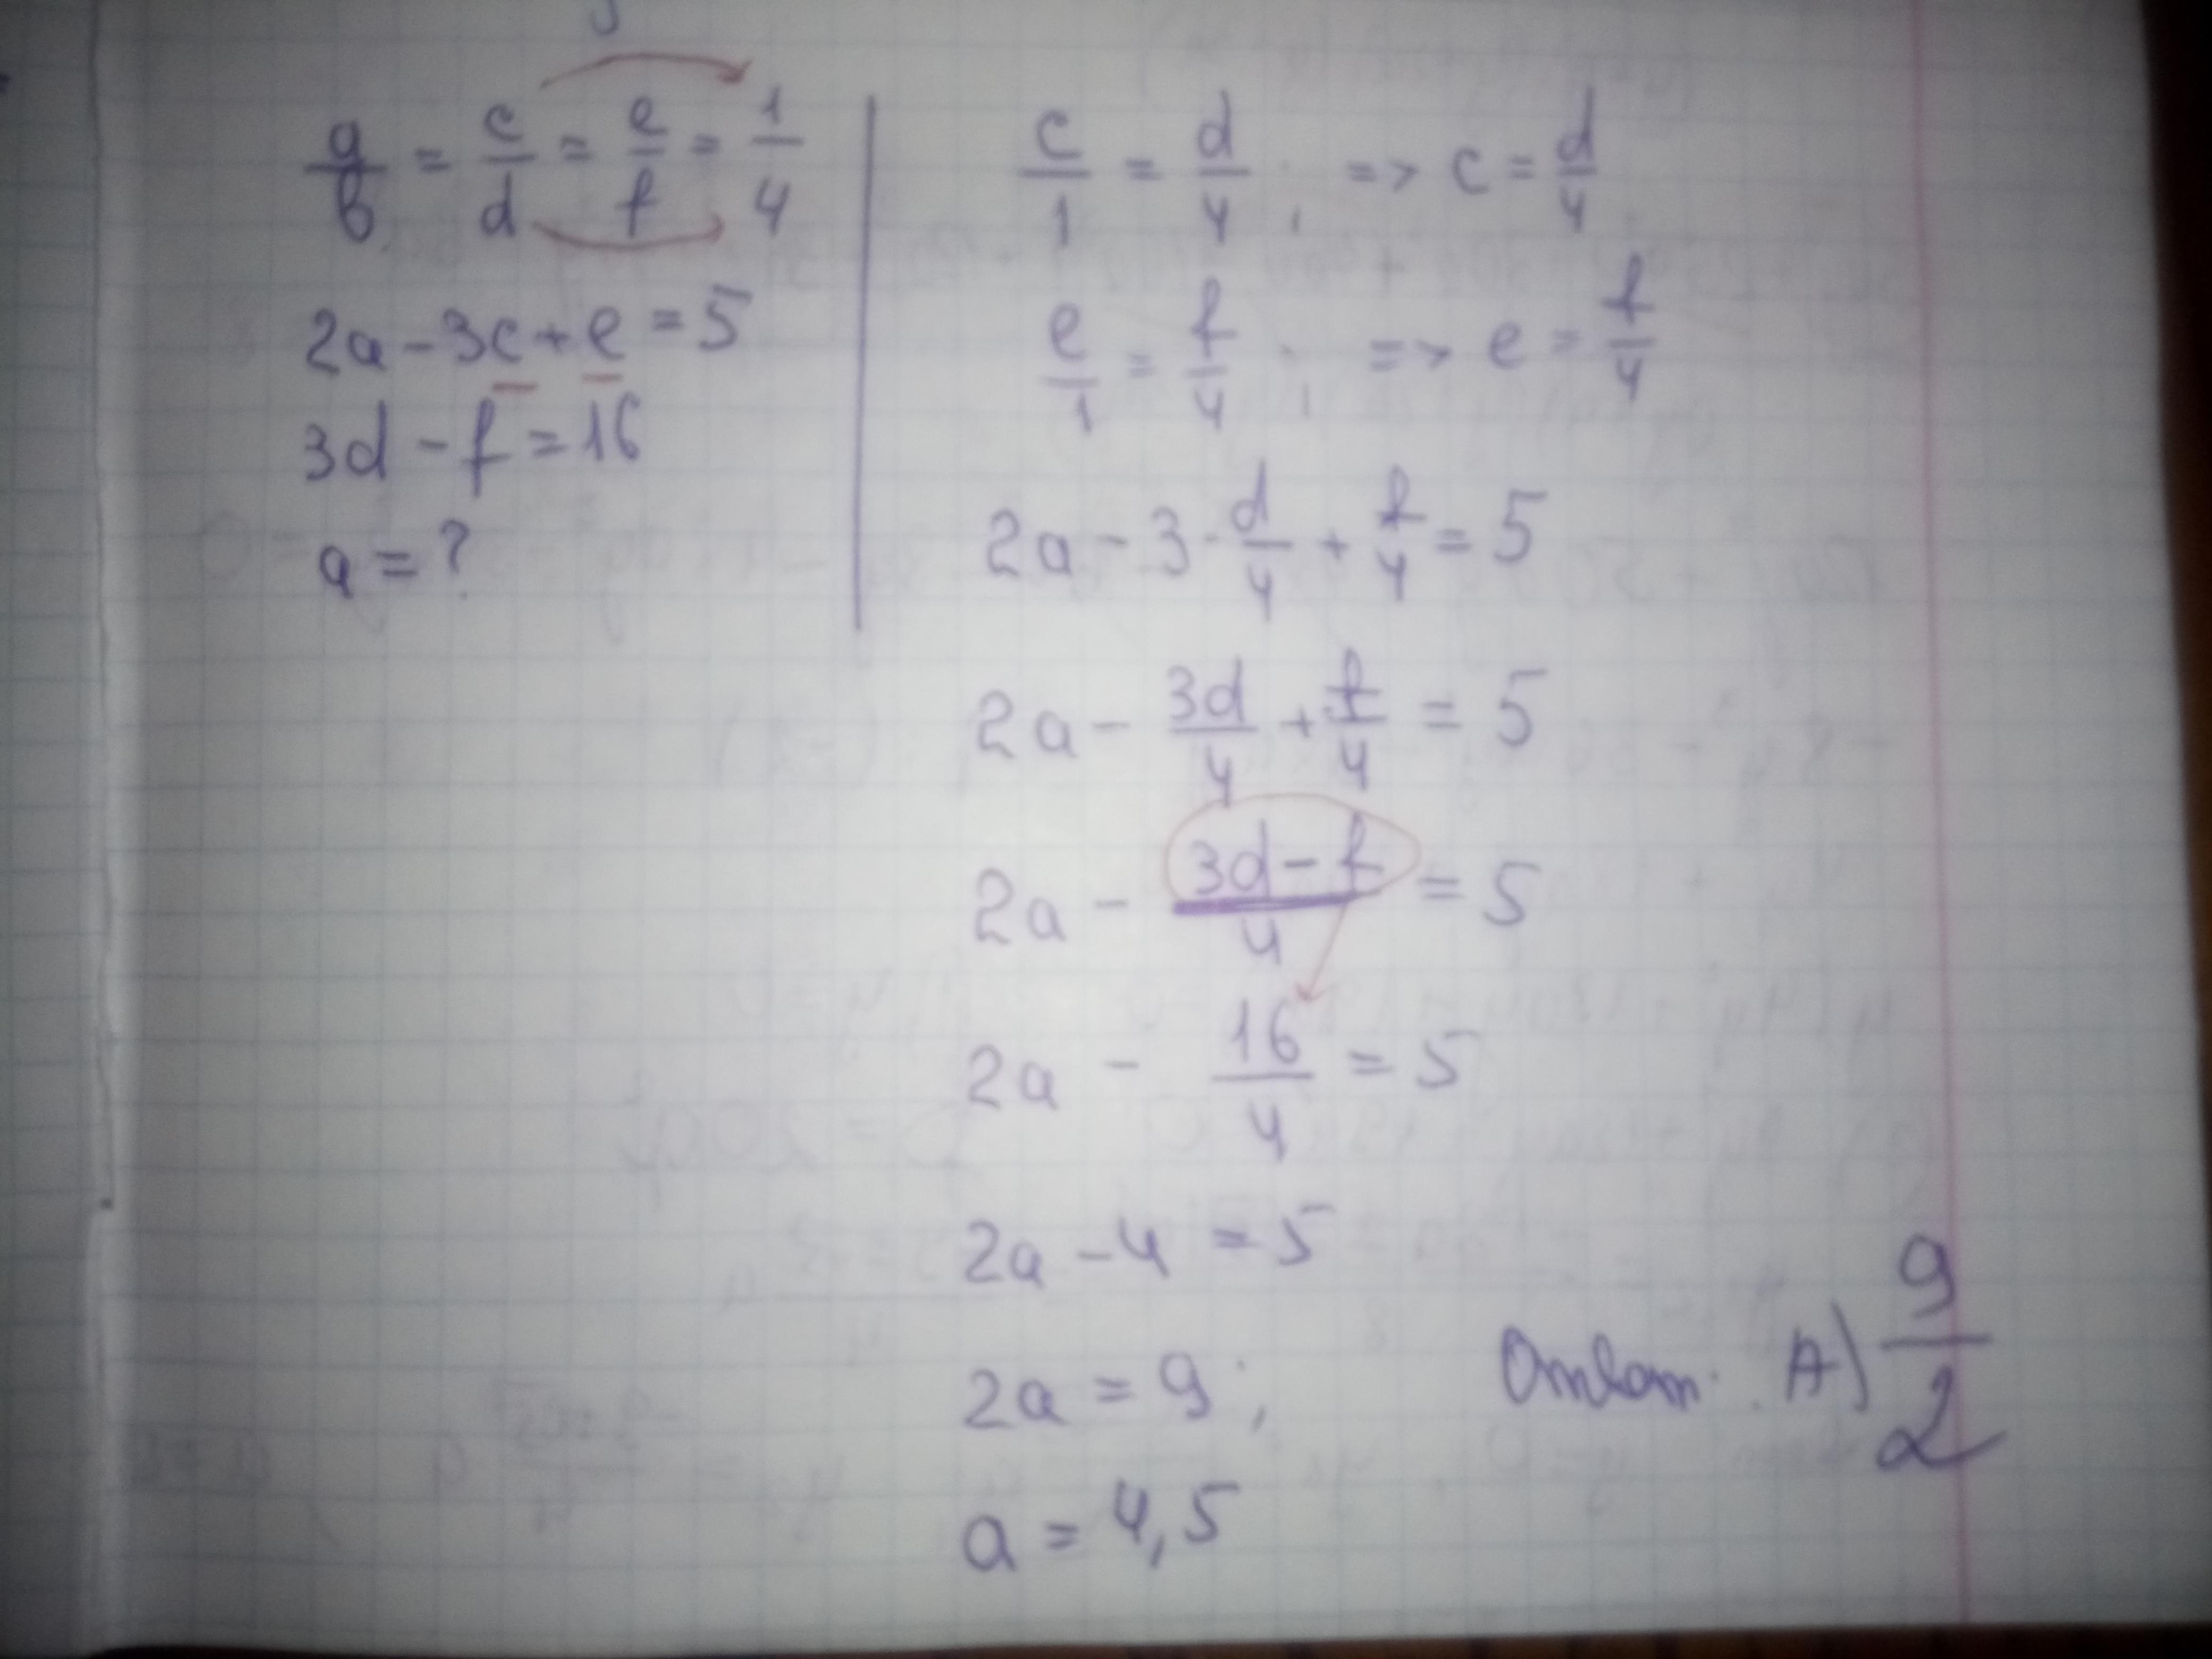 a/b = c/d = e/f = 1/4
2a - 3c + e = 5
3d - f = 16
a = ?
c/1 = d/4 ; => c = d/4
e/1 = f/4 ; => e = f/4
2a - 3 · d/4 + f/4 = 5
2a - 3d/4 + f/4 = 5
2a - (3d - f)/4 = 5
2a - 16/4 = 5
2a - 4 = 5
2a = 9 ;
a = 4,5
Ответ: А) 9/2